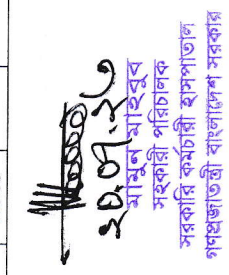 ২০.০৭.২৩
মামুন মাহবুব
সহকারী পরিচালক
সরকারি কর্মচারী হাসপাতাল
গণপ্রজাতন্ত্রী বাংলাদেশ সরকার